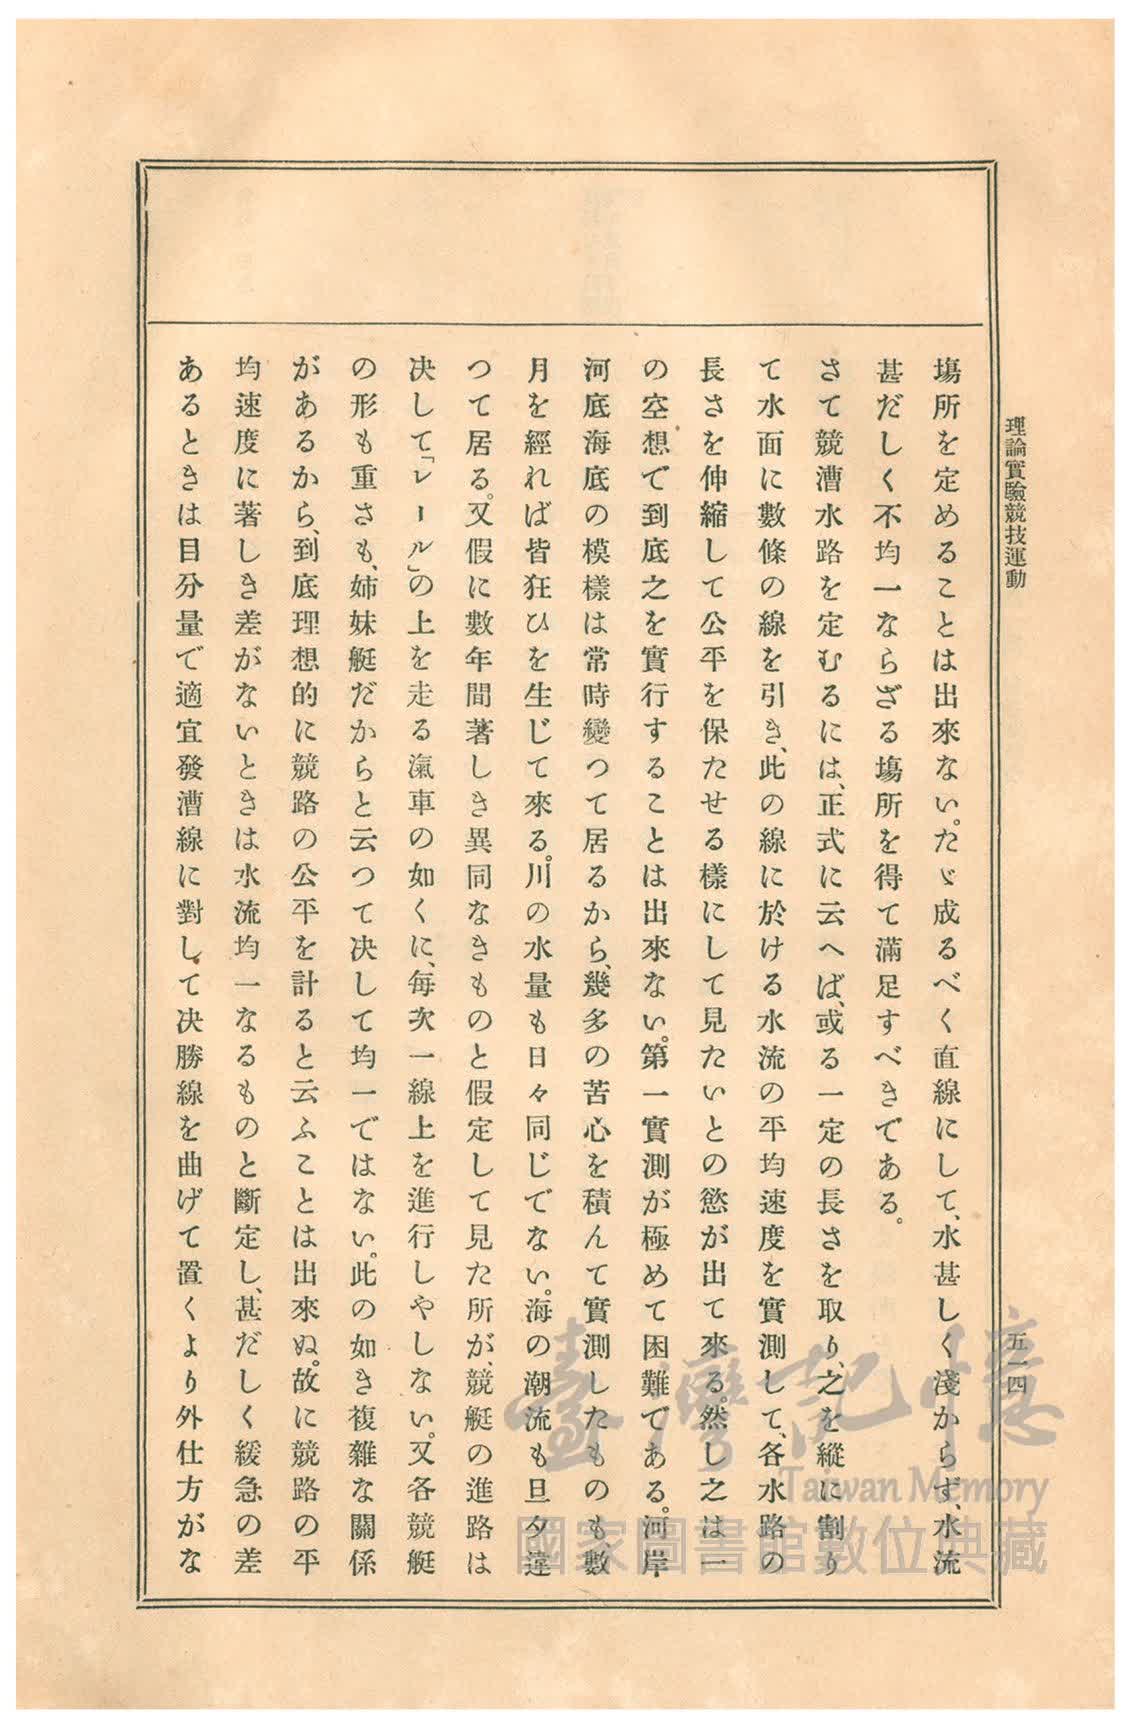 理論實驗競技運動
五一四
塲所を定めることは出來ない。たゞ成るべく直線にして、水甚しく淺からず、水流
甚だしく不均一ならざる塲所を得て滿足すべきである。
さて競漕水路を定むるには、正式に云へば、或る一定の長さを取り、之を縱に割り
て水面に數條の線を引き、此の線に於ける水流の平均速度を實測して、各水路の
長さを伸縮して公平を保たせる樣にして見たいとの慾が出て來る。然し之は一
の空想で到底之を實行することは出來ない。第一實測が極めて困難である。河岸
河底海底の模樣は常時變つて居るから、幾多の苦心を積んて實測したものも、數
月を經れば皆狂ひを生じて來る。川の水量も日々同じでない。海の潮流も旦夕違
つて居る。又假に數年間著しき異同なきものと假定して見た所が、競艇の進路は
决して「レール」の上を走る滊車の如くに、每次一線上を進行しやしない。又各競艇
の形も重さも、姉妹艇だからと云つて决して均一ではない。此の如き複雜な關係
があるから、到底理想的に競路の公平を計ると云ふことは出來ぬ。故に競路の平
均速度に著しき差がないときは水流均一なるものと斷定し、甚だしく緩急の差
あるときは目分量で適宜發漕線に對して决勝線を曲げて置くより外仕方がな
臺灣記憶
Taiwan Memory
國家圖書館數位典藏